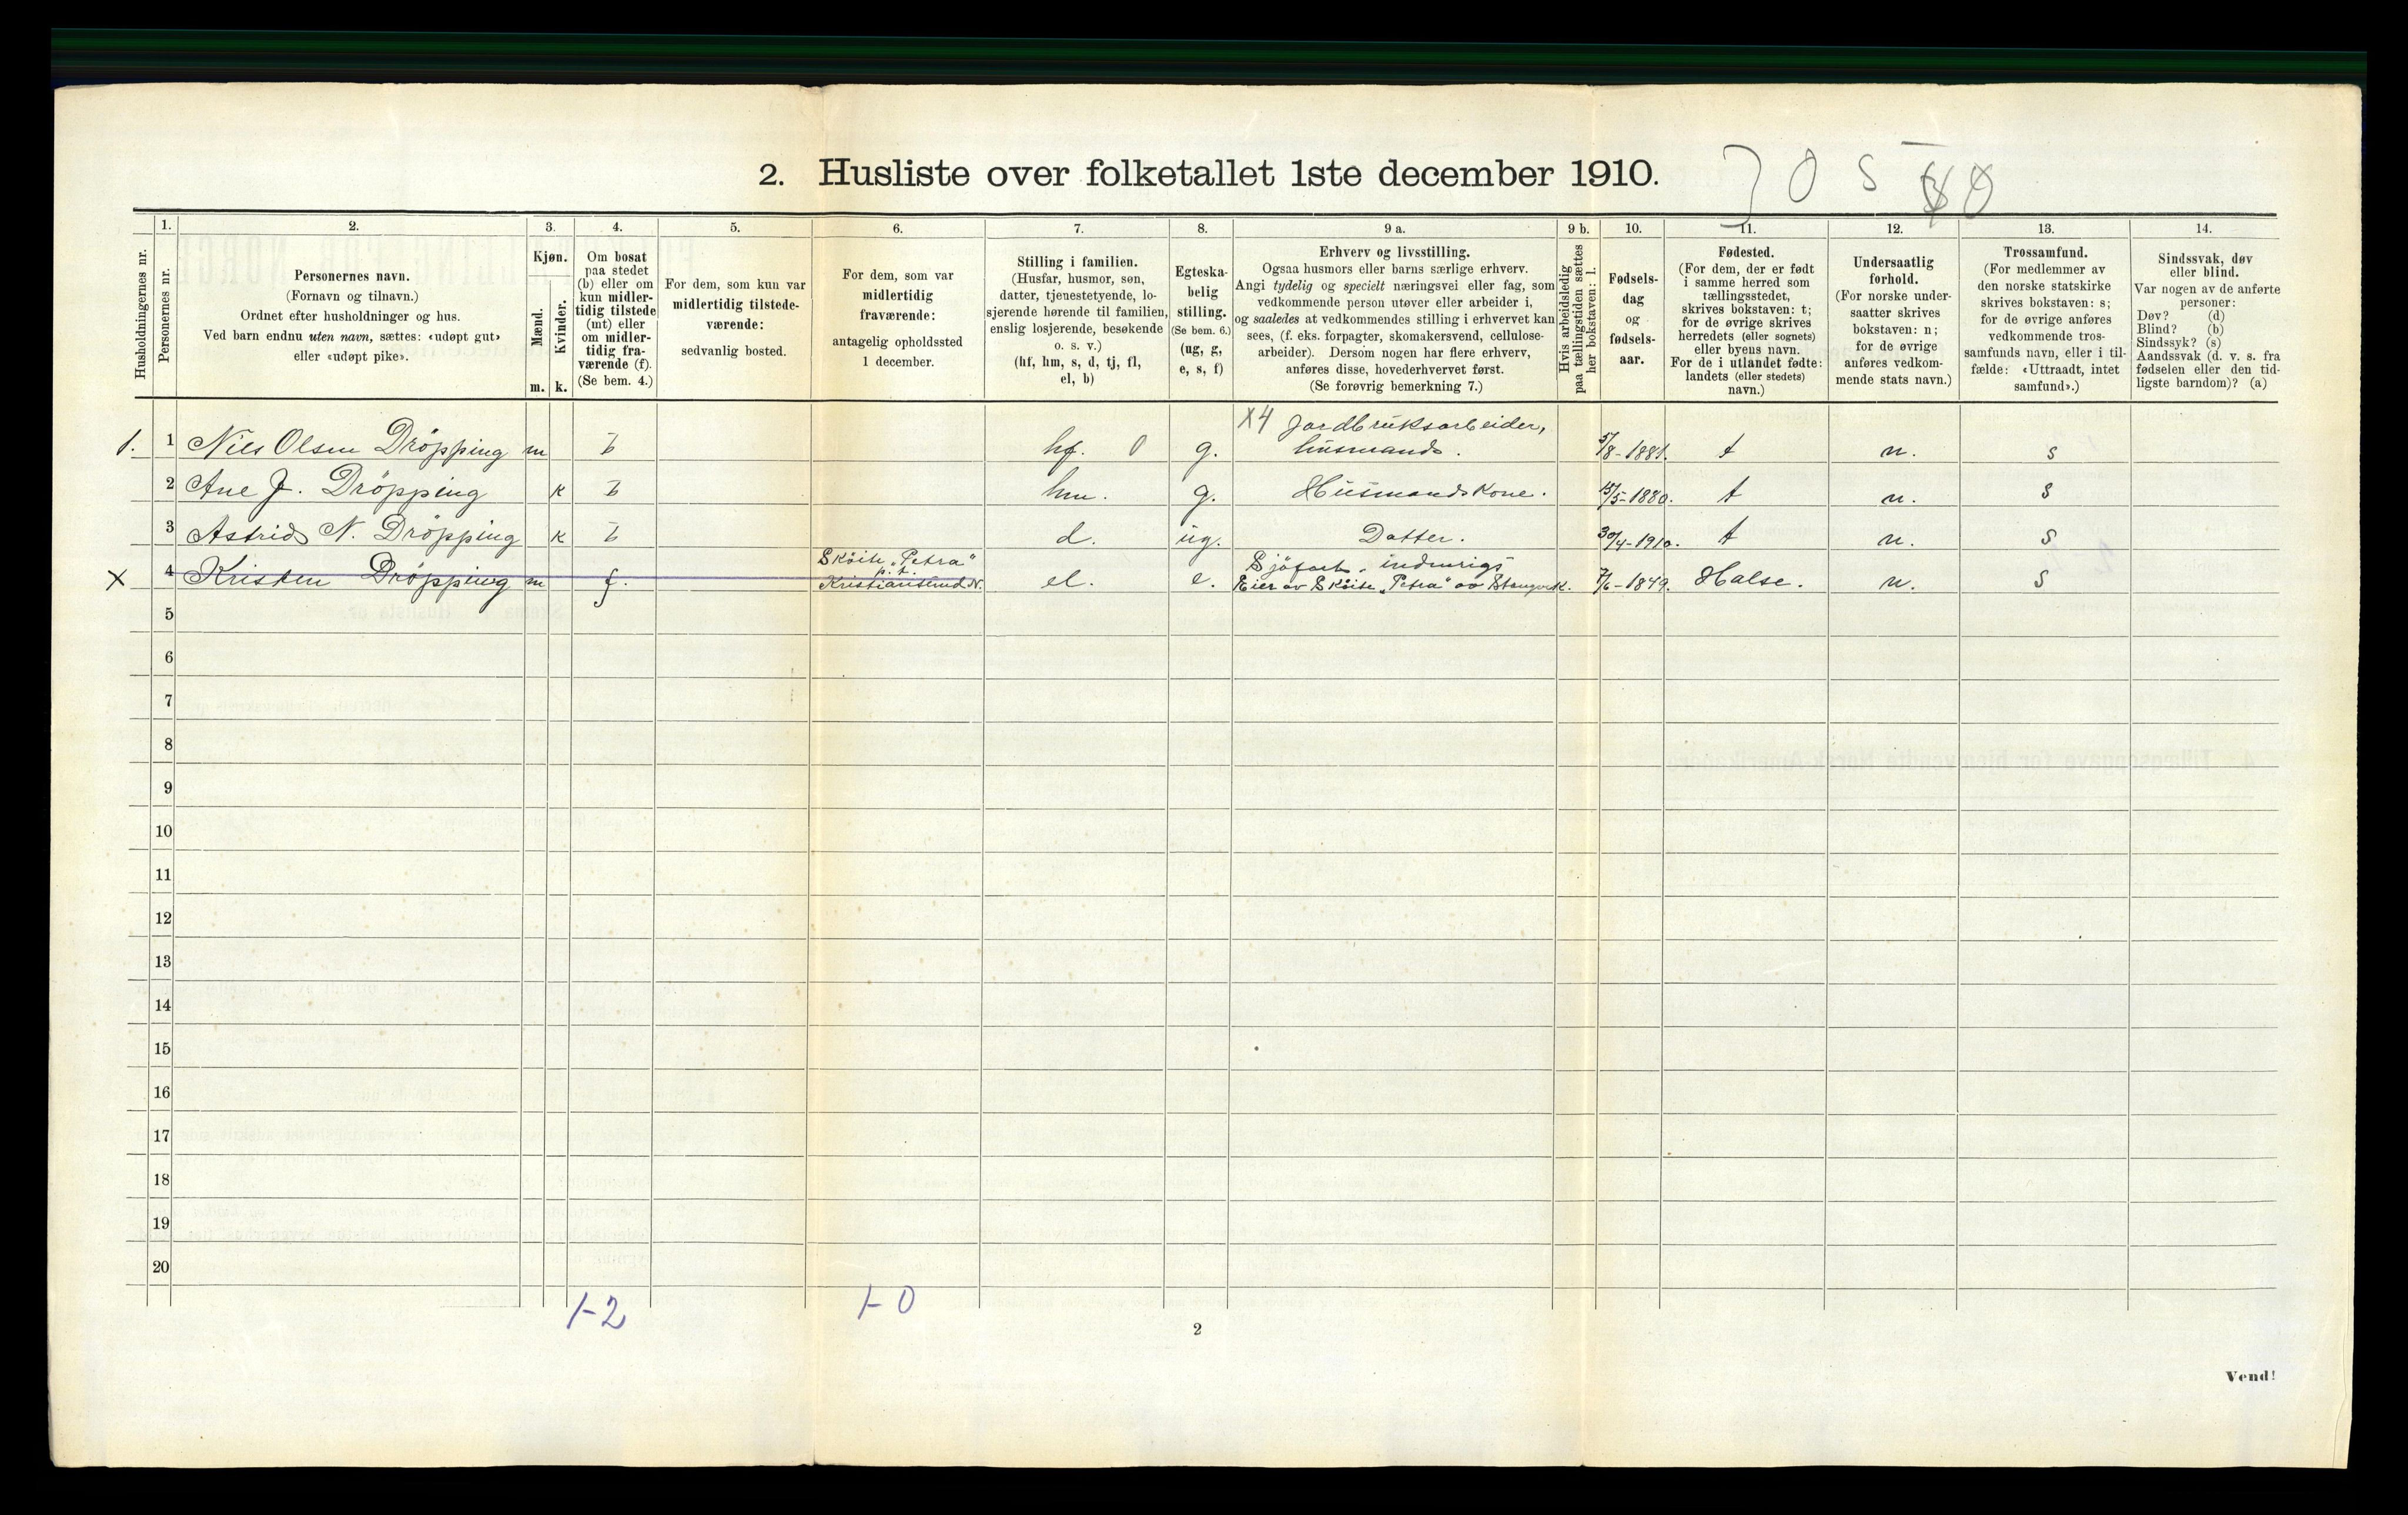 2. Husliste over folketallet 1ste december 1910.
1. 2. 3. 4. 5. 6. 7. 8. 9 a. 9 b. 10. 11. 12. 13. 14.
Husholdningernes nr.
Personernes nr.
Personernes navn.
(Fornavn og tilnavn.)
Ordnet efter husholdninger og hus.
Ved barn endnu uten navn, sættes: «udøpt gut»
eller «udøpt pike».
Kjøn.
Mænd.
Kvinder.
m. k.
Om bosat
paa stedet
(b) eller om
kun midler-
tidig tilstede
(mt) eller
om midler-
tidig fra-
værende (f).
(Se bem. 4.)
For dem, som kun var
midlertidig tilstede-
værende:
sedvanlig bosted.
For dem, som var
midlertidig
fraværende:
antagelig opholdssted
1 december.
Stilling i familien.
(Husfar, husmor, søn,
datter, tjenestetyende, lo-
sjerende hørende til familien,
enslig losjerende, besøkende
o. s. v.)
(hf, hm, s, d, tj, fl,
el, b)
Egteska-
belig
stilling.
(Se bem. 6.)
(ug, g,
e, s, f)
Erhverv og livsstilling.
Ogsaa husmors eller barns særlige erhverv.
Angi tydelig og specielt næringsvei eller fag, som
vedkommende person utøver eller arbeider i,
og saaledes at vedkommendes stilling i erhvervet kan
sees, (f. eks. forpagter, skomakersvend, cellulose-
arbeider). Dersom nogen har flere erhverv,
anføres disse, hovederhvervet først.
(Se forøvrig bemerkning 7.)
Hvis arbeidsledig
paa tællingstiden sættes
her bokstaven: l.
Fødsels-
dag
og
fødsels-
aar.
Fødested.
(For dem, der er født
i samme herred som
tællingsstedet,
skrives bokstaven: t;
for de øvrige skrives
herredets (eller sognets)
eller byens navn.
For de i utlandet fødte:
landets (eller stedets)
navn.)
Undersaatlig
forhold.
(For norske under-
saatter skrives
bokstaven: n;
for de øvrige
anføres vedkom-
mende stats navn.)
Trossamfund.
(For medlemmer av
den norske statskirke
skrives bokstaven: s;
for de øvrige anføres
vedkommende tros-
samfunds navn, eller i til-
fælde: «Uttraadt, intet
samfund».)
Sindssvak, døv
eller blind.
Var nogen av de anførte
personer:
Døv? (d)
Blind? (b)
Sindssyk? (s)
Aandssvak (d. v. s. fra
fødselen eller den tid-
ligste barndom)? (a)
X4 Jordbruksarbeider,
1. 1 Nils Olsen Dröpping m b hf. 0 g. husmands. 5/8-1881. t n. s
2 Ane J. Dröpping k b hm. g. Husmandskone. 15/5-1880. t n. s
3 Astrid N. Dröpping k b d. ug. Datter. 30/4-1910. t n. s
Sköite „Petra" Sjöfart, indenrigs
p. t.
X 4 Kristen Dröpping m f. Kristiansund N. el. e. Eier av Sköite „Petra" av Stangvik. 7/6-1849. Halse. n. s
5
6
7
8
9
10
11
12
13
14
15
16
17
18
19
20
1-2 1-0
2
Vend!